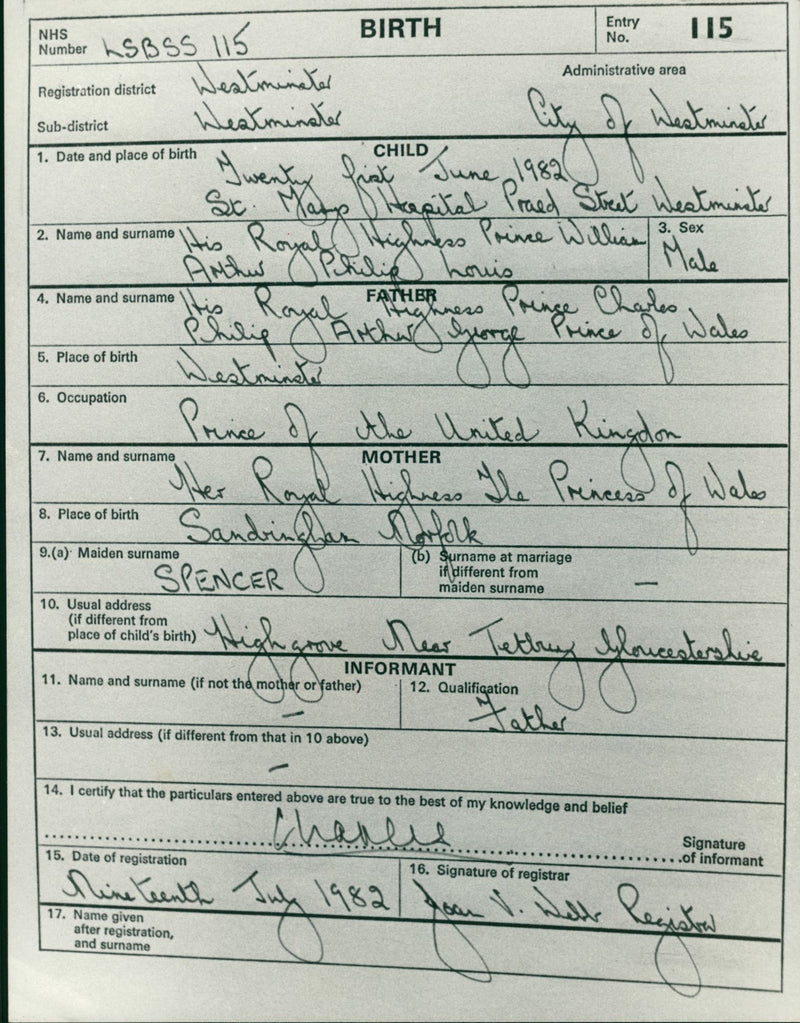 BIRTH
NHS Number LSBSS 115
Entry No. 115
Registration district Westminster
Administrative area
Sub-district Westminster
City of Westminster
CHILD
1. Date and place of birth Twenty first June 1982
St. Marys Hospital Praed Street Westminster
2. Name and surname His Royal Highness Prince William
Arthur Philip Louis
3. Sex
Male
FATHER
4. Name and surname His Royal Highness Prince Charles
Philip Arthur George Prince of Wales
5. Place of birth
Westminster
6. Occupation
Prince of the United Kingdom
MOTHER
7. Name and surname
Her Royal Highness The Princess of Wales
8. Place of birth
Sandringham Norfolk
9.(a) Maiden surname
SPENCER
(b) Surname at marriage
if different from
maiden surname —
10. Usual address
(if different from
place of child's birth) Highgrove Near Tetbury Gloucestershire
INFORMANT
11. Name and surname (if not the mother or father)
—
12. Qualification
Father
13. Usual address (if different from that in 10 above)
—
14. I certify that the particulars entered above are true to the best of my knowledge and belief
Charles
Signature
of informant
15. Date of registration
Nineteenth July 1982
16. Signature of registrar
Joan V. Webb Registrar
17. Name given
after registration,
and surname